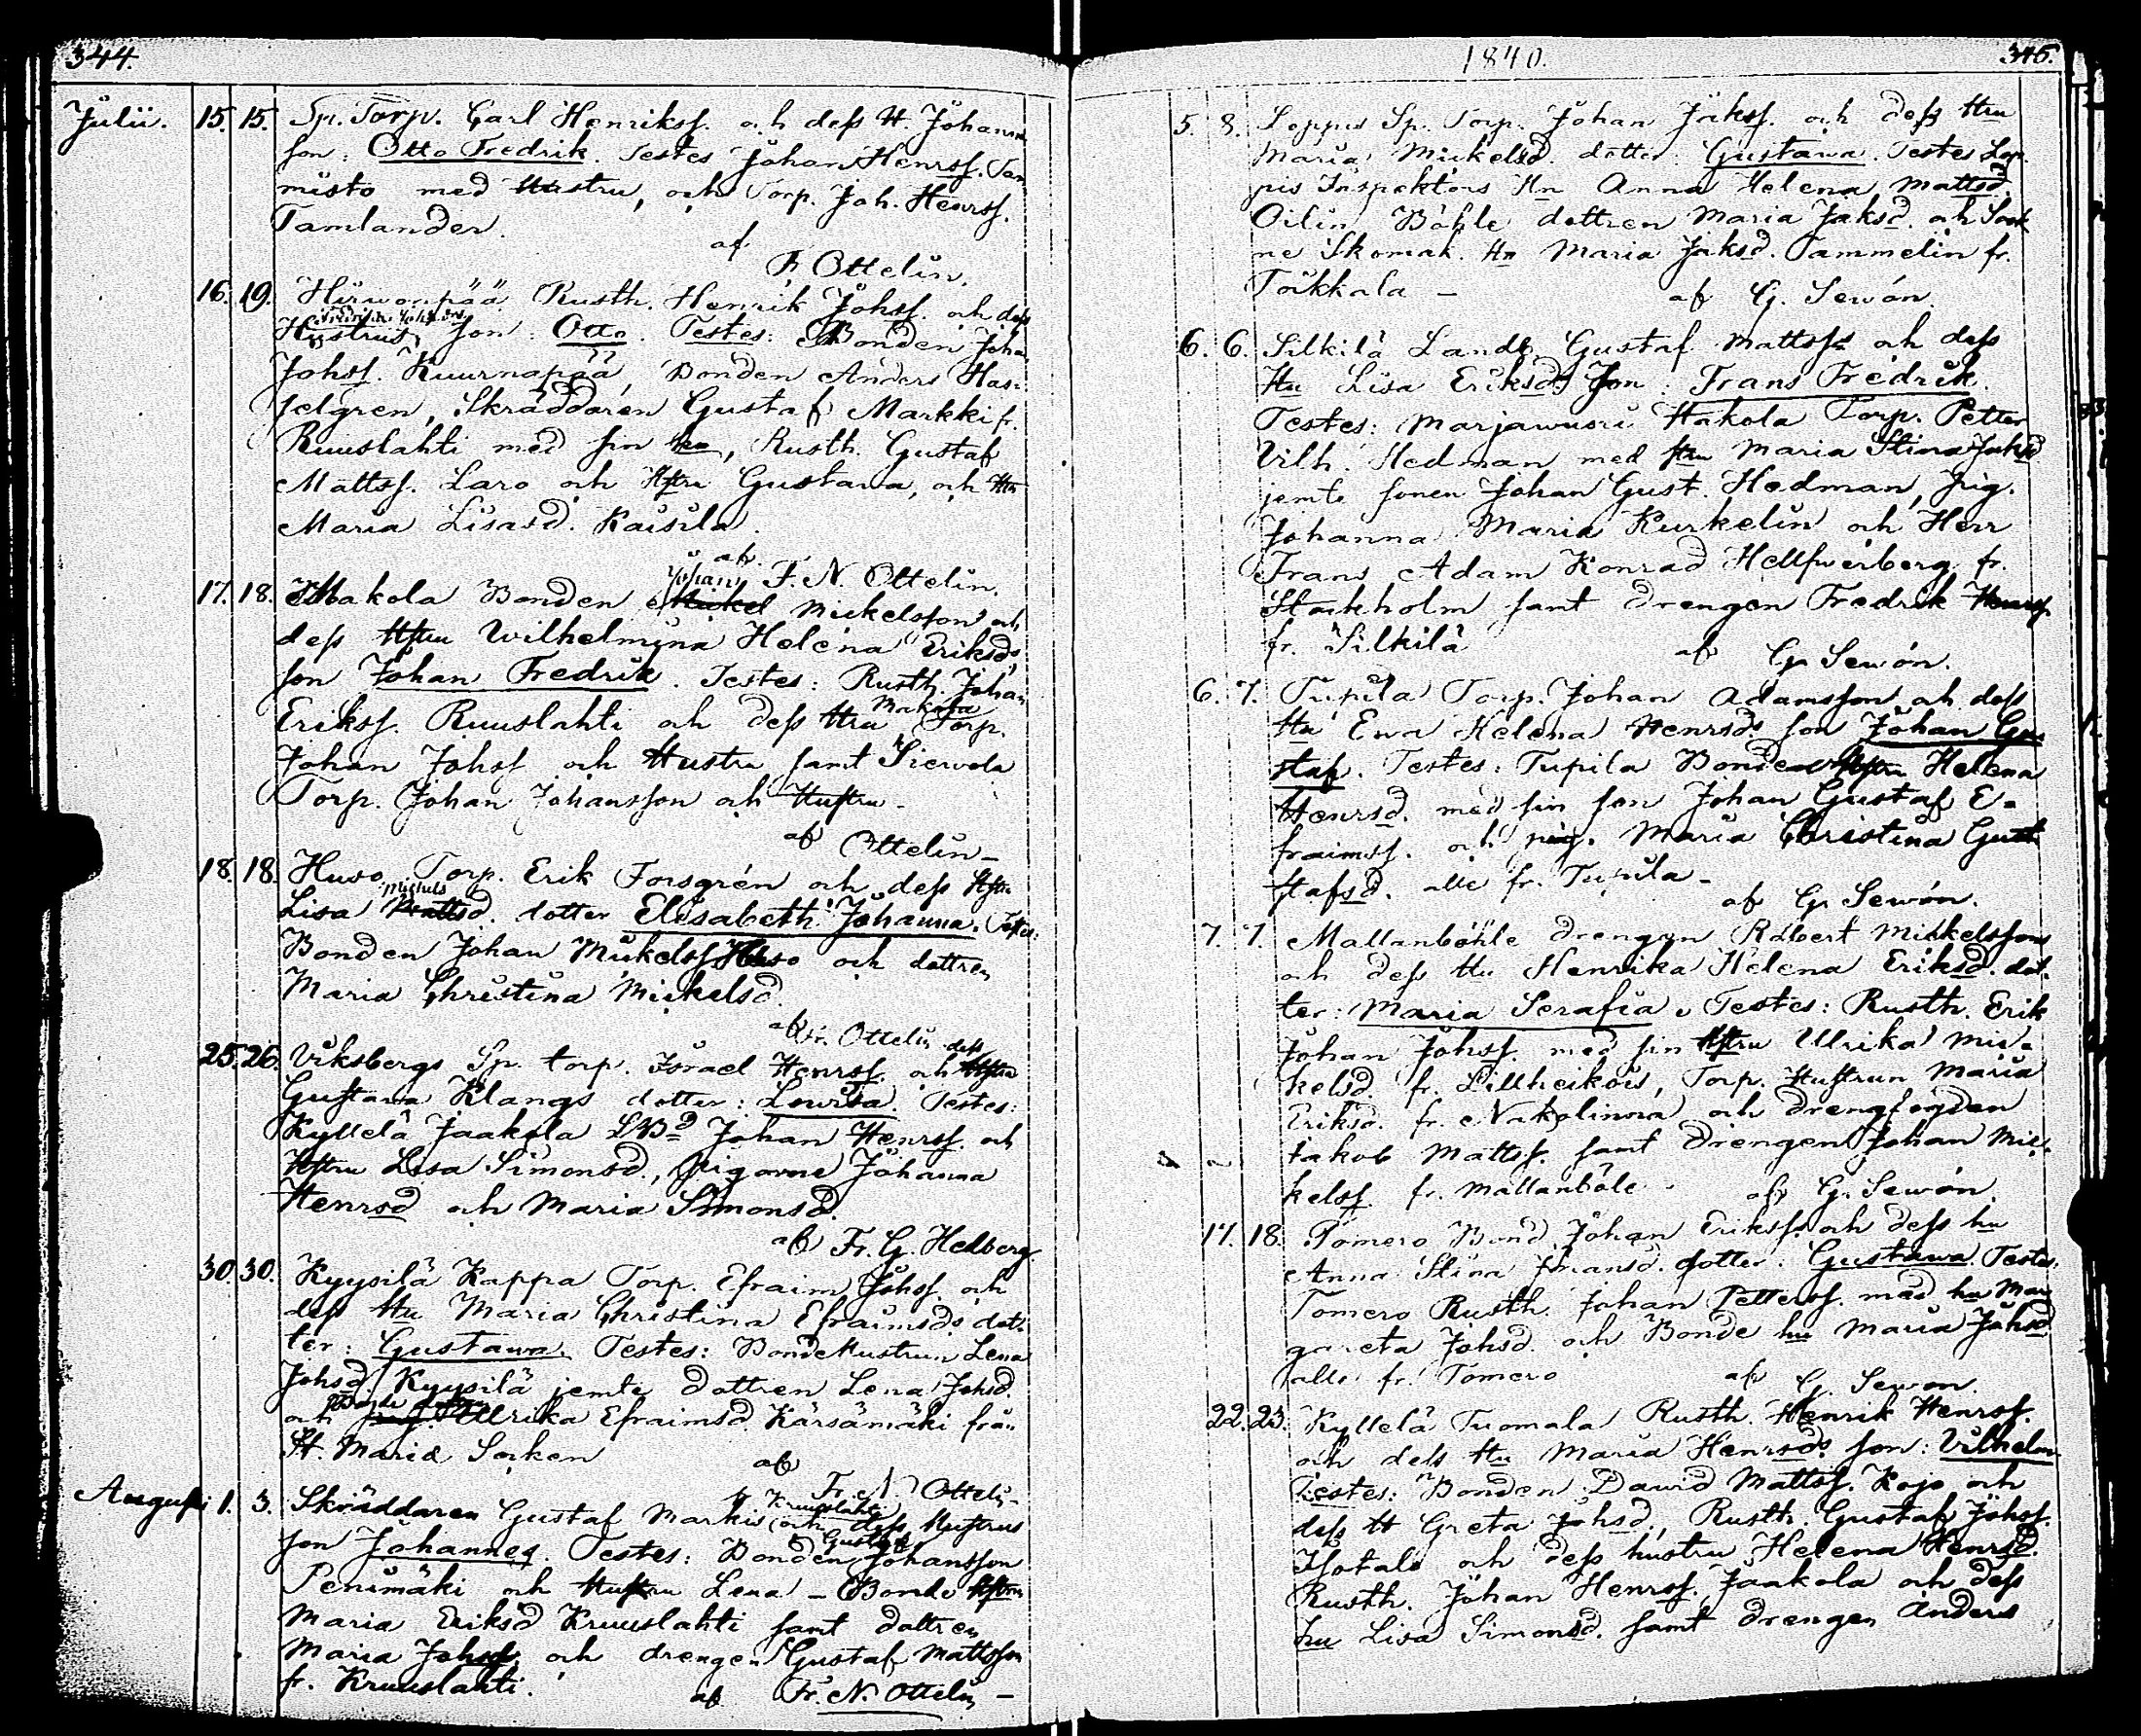 344.
Julii. 15. 15. Sp. Torp. Carl Henrikss. och dess H. Johanna
son: Otto Fredrik. Testes Johan Henrss. Tam
misto med Hustru, och Torp. Joh. Henrss.
Tamlander.
af
F. Ottelin.
16. 19. Hirvonpää Rusth. Henrik Johss. och dess
Hustrus son: Otto. Testes: Bonden Johan
Johss. Kuurnapää, Bonden Anders Has-
selgren, Skräddaren Gustaf Markki fr.
Ruuslahti med sin hu, Rusth. Gustaf
Mattss. Laro och Hstru Gustava, och Hu
Maria Lisasd. Kaisila.
af.
F. N. Ottelin.
Johan
17. 18. Makola Bonden Mickel Mickelsson och
dess Hstru Wilhelmina Helena Eriksds
son Johan Fredrik. Testes: Rusth. Johan
Makola
Erikss. Ruuslahti och dess Hru Torp.
Johan Johss och Hustru samt Siervola
Torp. Johan Johansson och Hustru -
af Ottelin -
18. 18. Huso Torp. Erik Forsgrén och dess Hstru
Michels
Lisa Mattsd. dotter Elisabeth Johanna. Testes:
Bonden Johan Mickelss Huso och dottren
Maria Christina Mickelsd.
af Fr. Ottelin
dess
25. 26. Viksbergs Sp. torp. Israel Henrss. och Hstru
Gustava Klangs dotter: Lovisa Testes:
Kyllelä Jaakola LBd Johan Henrss. och
Hstru Lisa Simonsd., pigorne Johanna
Henrsd och Maria Simonsd.
af Fr. G. Hedberg.
30. 30. Kyysilä Kappa Torp. Efraim Johss. och
dess Hu Maria Christina Efraimsds dot-
ter: Gustawa. Testes: BondeHustrun Lena
Johsd. Kyysilä jemte dottren Lena Johsd.
Bonde dottren
och Ulrika Efraimsd. Kärsämäki från
St. Marie Socken
af
Fr. N. Ottelin -
Augusti 1. 3. Skräddaren Gustaf Markis och dess Hustrus
fr Kruuslahti
son Johannes. Testes: Bonden Johansson
Gustaf
Penimäki och Hustru Lena - Bonde Hstrun
Maria Eriksd Kruuslahti samt dottren
Maria Johsd. och drengen Gustaf Mattsson
fr. Kruuslahti.
af Fr. N. Ottelin -
1840.
345.
5. 8. Loppis Sp. Torp. Johan Jakss. och dess Hru
Maria Mickelsd. dotter Gustawa. Testes Lop-
pis Inspektors Hn Anna Helena Mattsd.
Oilin, Böhle dottren Maria Jaksd. och Sock
ne Skomak. Hn Maria Jaksd. Tammelin fr.
Toikkala -
af G. Sewón.
6. 6. Silkilä Landb. Gustaf Mattsss och dess
Hu Lisa Eriksds son: Frans Fredrik.
Testes: Marjawuori Hakola Torp. Petter
Vilh. Hedman med Hru Maria Stina Jaksd
jemte sonen Johan Gust. Hedman, pig.
Johanna Maria Kurkelin och Herr
Frans Adam Konrad Hellfwerberg fr.
Stockholm samt drengen Fredrik Henrss.
fr. Silkilä
af G. Sewón.
6. 7. Tupila Torp. Johan Adamsson och dess
Hu Ewa Helena Henrsds son Johan Gus
staf. Testes: Tupila Bonde Hstru Helena
Henrsd. med sin son Johan Gustaf E-
fraimss. och pig. Maria Christina Gust
stafsd. alle fr. Tupila -
af G. Sewón.
7. 7. Mallanböhle drengen Robert Mickelssons
och dess Hu Henrika Helena Eriksd. dot-
ter: Maria Serafia. Testes: Rusth. Erik
Johan Johss. med sin Hstru Ulrika Mic-
kelsd. fr. Lillheikois, Torp. Hustrun Maria
Eriksd. fr. Nakolinna och drengfogden
Jakob Mattss. samt drengen Johan Mic-
kelss. fr. Mallanböle.
af G. Sewón.
17. 18. Tomero Bond. Johan Erikss. och dess hu
Anna Stina Johansd. dotter: Gustawa. Testes:
Tomero Rusth. Johan Petterss. med hu Mar
gareta Johsd. och Bonde hu Maria Johsd.
alle fr. Tomero
af G. Sewon.
22. 23. Kyllelä Tuomala Rusth. Henrik Henrss.
och dess Hu Maria Henrsds son: Vilhelm
Testes: Bonden David Mattss. Kojo och
dess H Greta Johsd., Rusth. Gustaf Johss.
Isotalo och dess hustru Helena Henrsd.
Rusth. Johan Henrss. Jaakola och dess
hu Lisa Simonsd. samt drengen Anders